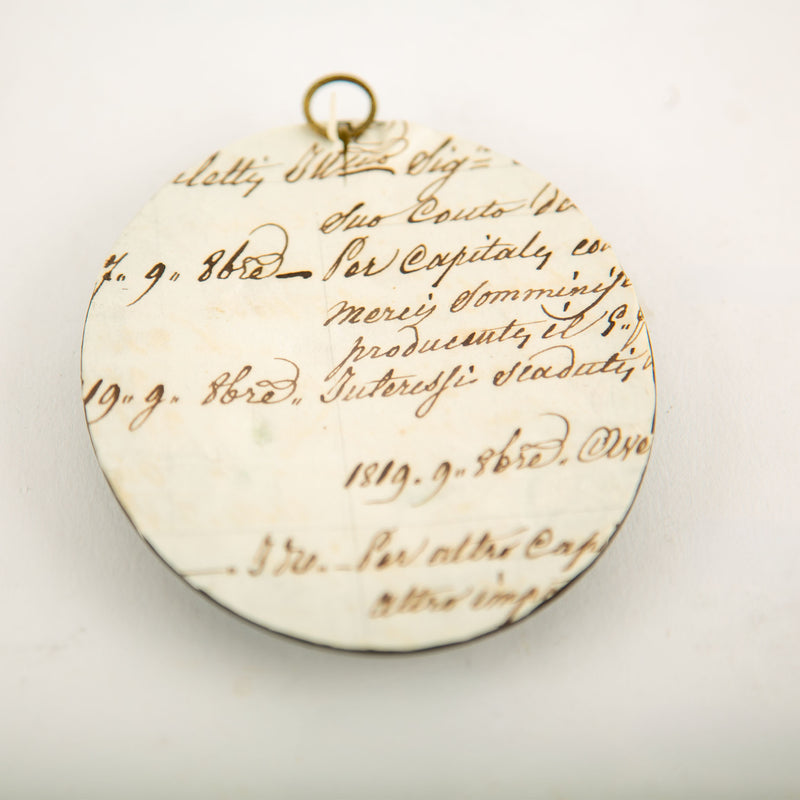 Sig.re
Suo Conto
7. 9.. 8bre — Per Capitale, co
merci somministr
producenti il
19.. 9.. 8bre.. Interessi scaduti,
1819. 9.. 8bre.
Per altro Capi
altro imp